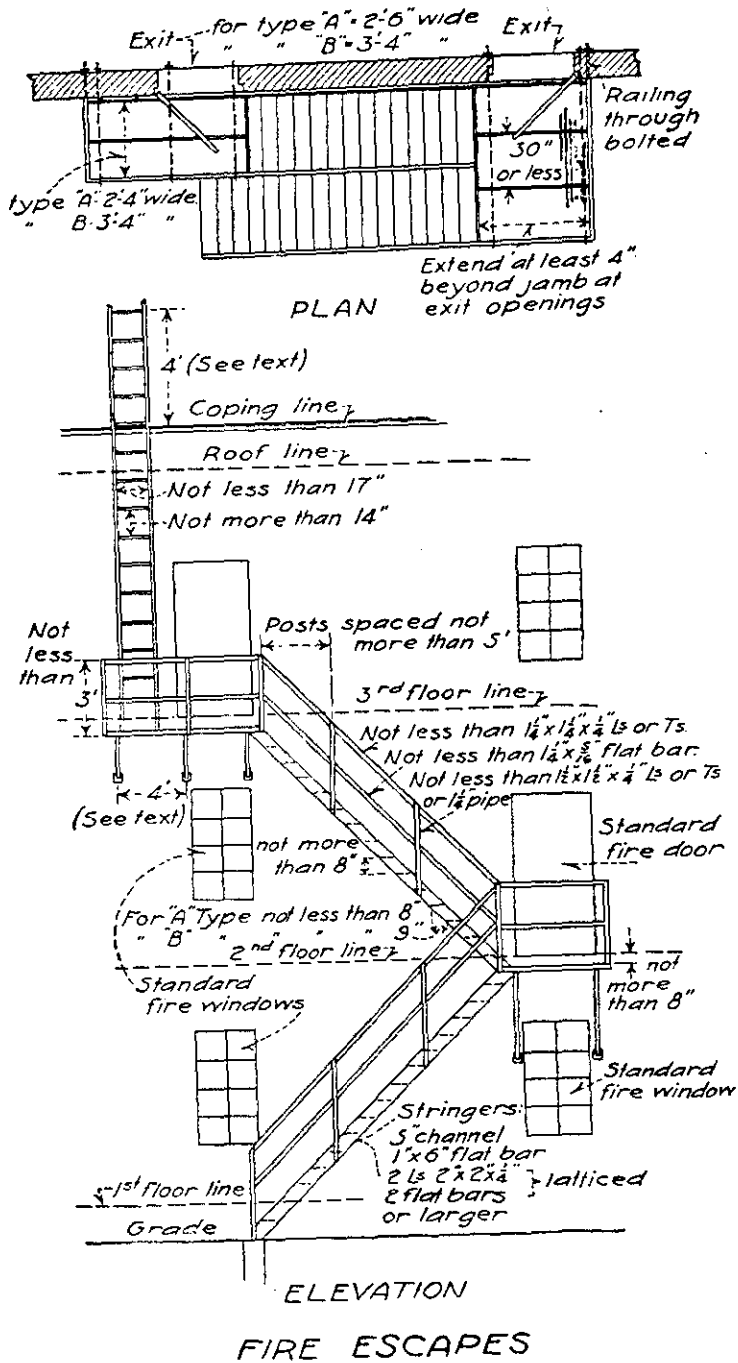 Exit for type "A" = 2'-6" wide
" " "B" = 3'-4" "
Exit
Railing
through
bolted
30"
or less
type "A"-2'-4" wide
" B-3'-4" "
Extend at least 4"
beyond jamb at
exit openings
PLAN
4' (See text)
Coping line
Roof line
Not less than 17"
Not more than 14"
Not
less
than
3'
Posts spaced not
more than 5'
3rd floor line
Not less than 1¼" x 1¼" x ¼" Ls or Ts
Not less than 1¼" x 5/16" flat bar.
Not less than 1½" x 1½" x ¼" Ls or Ts
or 1¼" pipe
4'
(See text)
not more
than 8"
Standard
fire door
For "A" Type not less than 8"
" "B" " " " " 9"
2nd floor line
not
more
than 8"
Standard
fire windows
Standard
fire window
Stringers:
5" channel
1" x 6" flat bar
2 Ls 2" x 2" x ¼"
2 flat bars
latticed
or larger
1st floor line
Grade
ELEVATION
FIRE ESCAPES